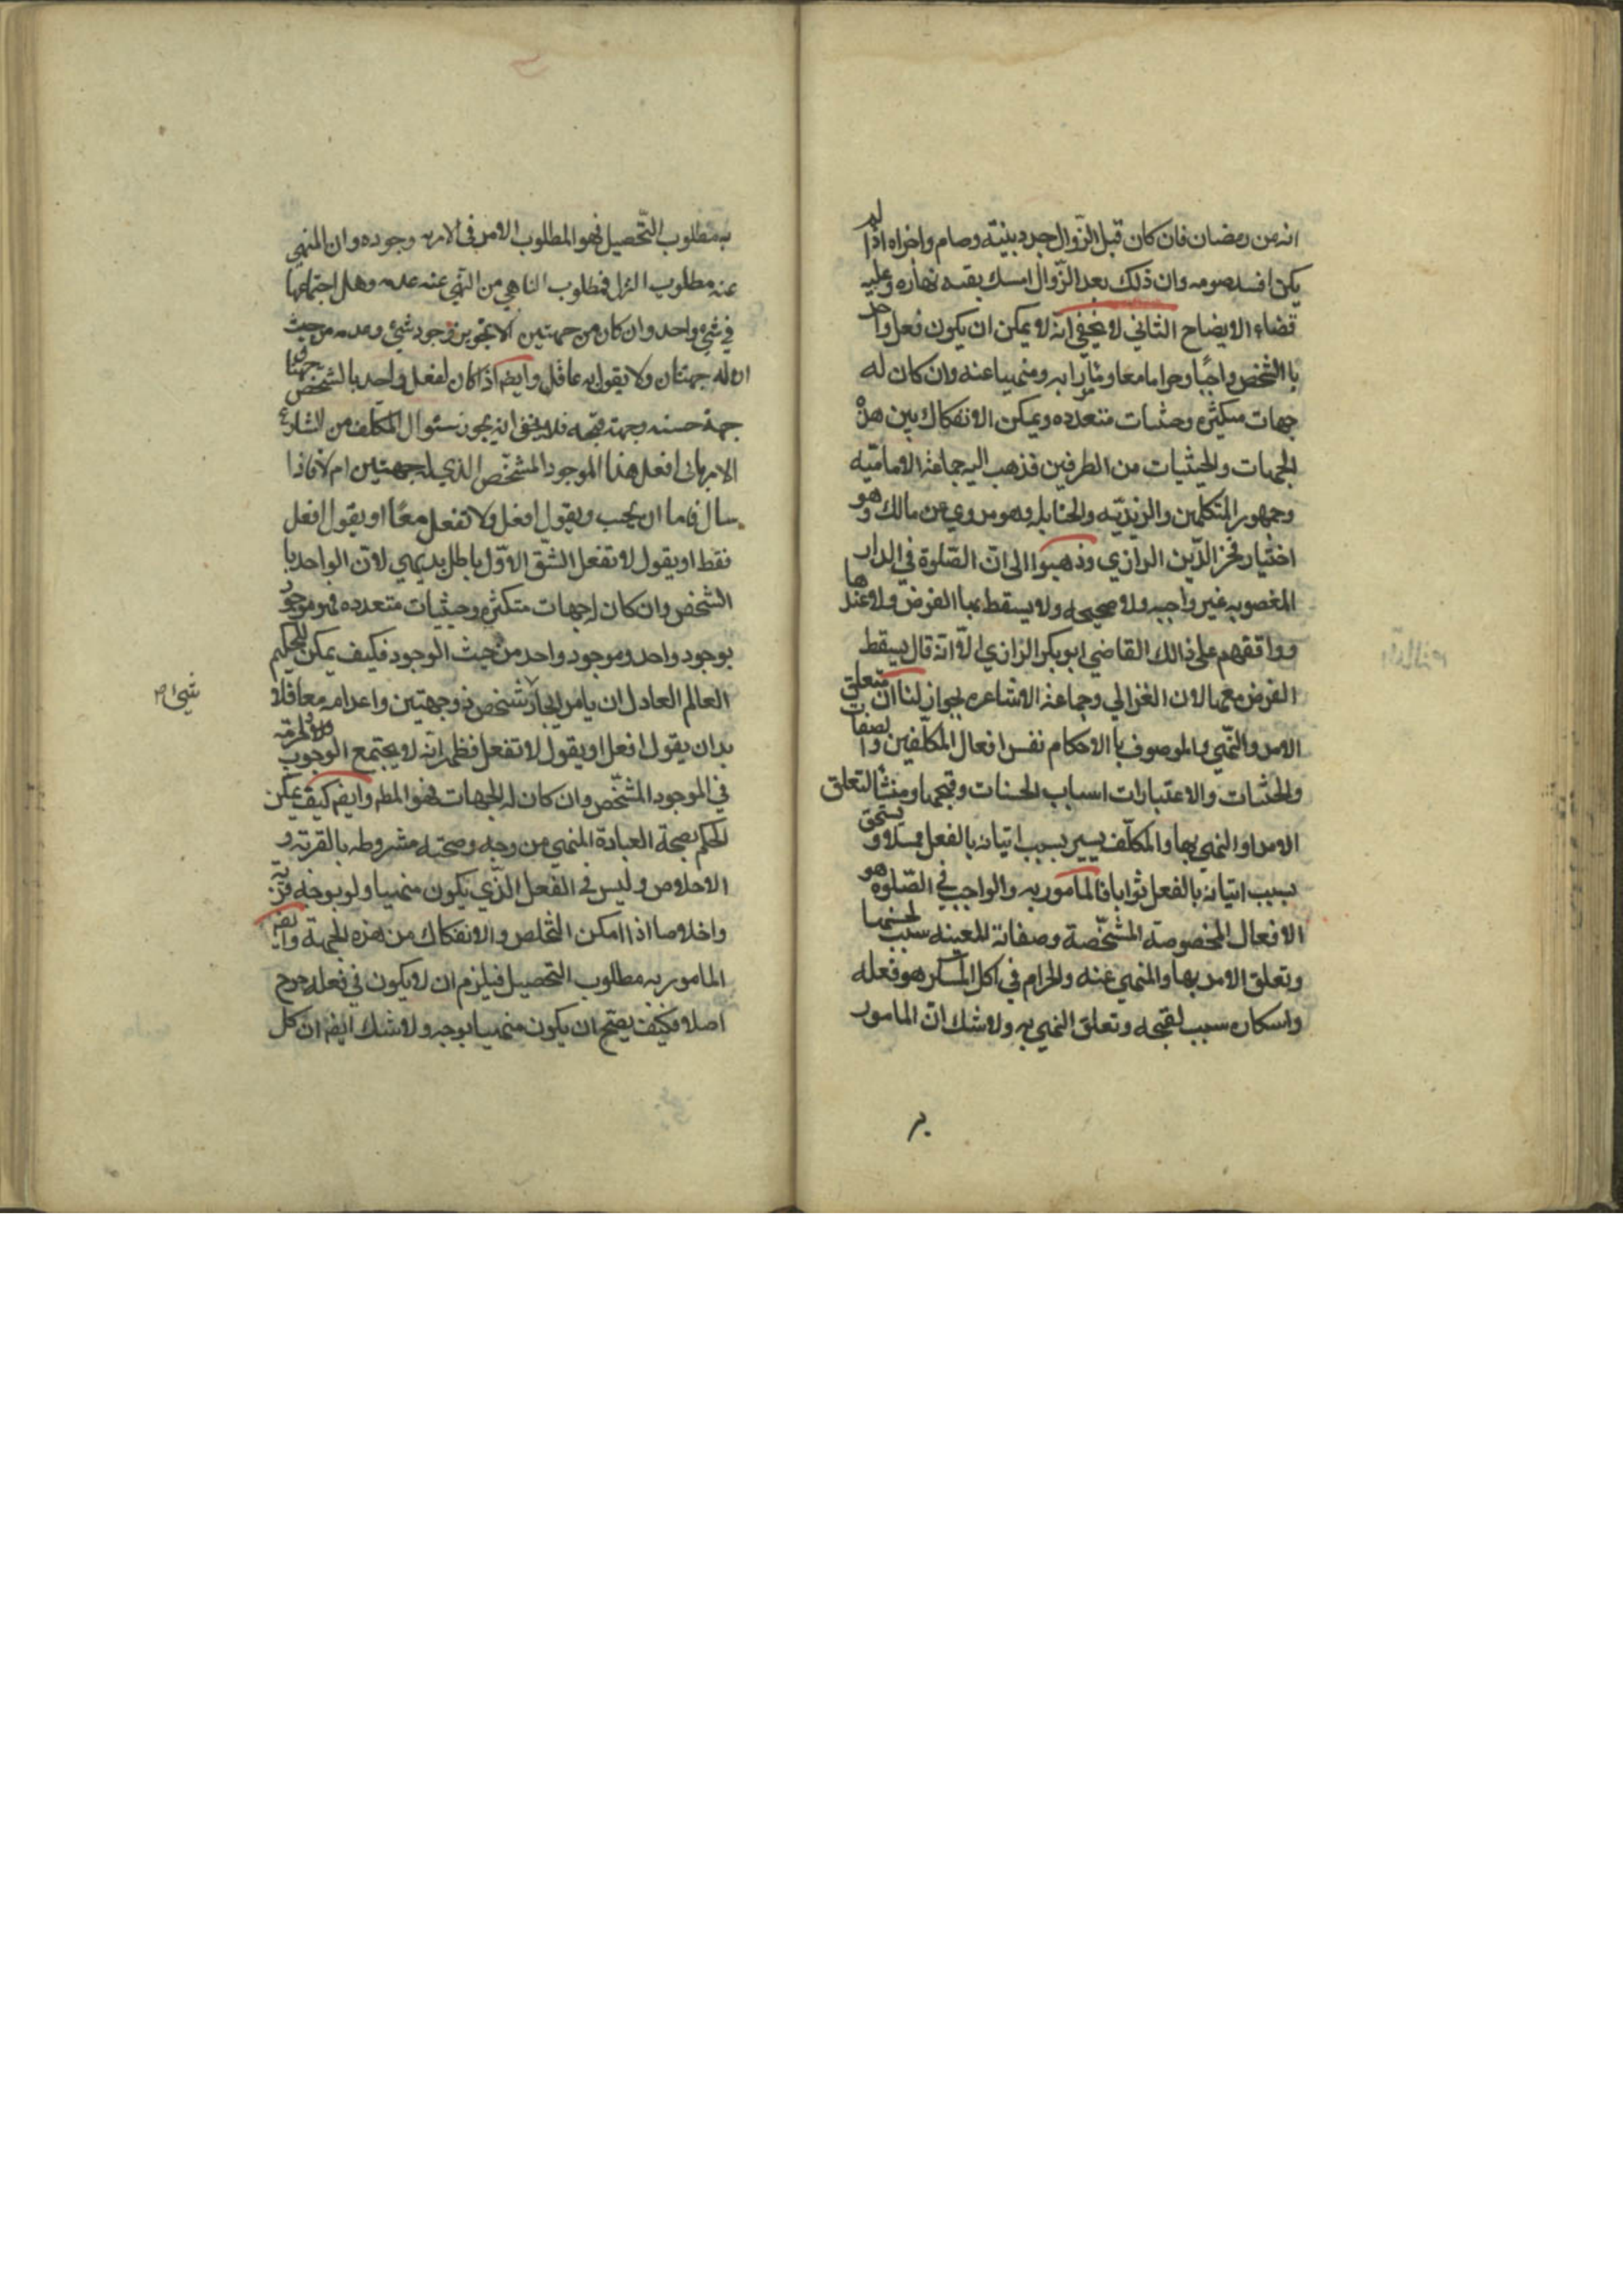 انه من رمضان فان كان قبل الزوال جرد بنيته وصام واجزاه اذا لم
يكن افسد صومه وان ذلك بعد الزوال امسك بقيه نهاره وعليه
قضاء الايضاح الثاني لا يخفى انه لا يمكن ان يكون فعل واحد
با الشخص واجبا وحراما معا ومنهيا عنه وان كان له
جهات متكثره وحثيات متعدده ويمكن الانفكاك بين هذ
الجهات والحيثيات من الطرفين فذهب اليه جماعة الاماميه
وجمهور المتكلمين والزيديه والحنابله وهو مروي عن مالك وهو
اختيار فخر الدين الرازي وذهبوا الى ان الصلوة في الدار
المغصوبه غير واجبه ولا صحيحه ولا يسقط بها الفرض ولا عندها
ووافقهم على ذالك القاضي ابو بكر الرازي الا انه قال يسقط
الفرض معها لان الغزالي وجماعة الاشاعره بجواز لنا ان متعلق
الامر والنهي والموصوف با الاحكام نفس افعال المكلفين وا لصفات
والحثيات والاعتبارات اسباب الحسنات وقبحها ومنشا لتعلق
الامر او النهي بها والمكلف يسير بسبب اتيانه بالفعل ممتثلا ويستحق
بسبب اتيانه بالفعل ثوابا فالمامور به والواجب في الصلوة هو
الافعال المخصوصة المشخصة وصفاته المعينه سبب لحسنها
وتعلق الامر بها والمنهي عنه والحرام في اكل المسكر هو فعله
واسكاره سبب لقبحه وتعلق النهي به ولا شك ان المامور
به مطلوب التحصيل فهو المطلوب الامر في الامر به وجوده وان المنهي
عنه مطلوب الترك فمطلوب الناهي من النهي عنه عدمه وهل اجتماعهما
في شئ واحد وان كان من جهتين الا تجويز وجود شئ وعدمه من حيث
ان له جهتان ولا يقول به عاقل وايضم اذا كان لفعل واحد بالشخص جهتان
جهة حسنه وجهة قبحه فلا يخفى انه يجوز سئوال المكلف من الشارع
الامر باني افعل هذا الموجود المشخص الذي له جهتين ام لا فاذا
سال فاما ان يجيب ويقول افعل ولا تفعل معا او يقول افعل
فقط او يقول لا تفعل الشق الاول باطل بديهي لان الواحد با
الشخص وان كان له جهات متكثره وحيثيات متعدده فهو موجود
بوجود واحد وموجود واحد من حيث الوجود فكيف يمكن للحكيم
العالم العادل ان يامر بايجاد شخص ذو جهتين واعدامه معا فلا
بد ان يقول افعل او يقول لا تفعل فظهر انه لا يجتمع الوجوب والحرمة
في الموجود المشخص وان كان له الجهات فهو المطم وايضم كيف يمكن
الحكم بصحة العبادة المنهي من وجه وصحته مشروطه بالقربة و
الاخلاص وليس في الفعل الذي يكون منهيا ولو بوجه قربة
واخلاصا اذا امكن التخلص والانفكاك من هذه الجهة وايضم
المامور به مطلوب التحصيل فيلزم ان لا يكون في فعله حرج
اصلا فكيف يصح ان يكون منهيا بوجه ولا شك ايضم ان كل
شئ